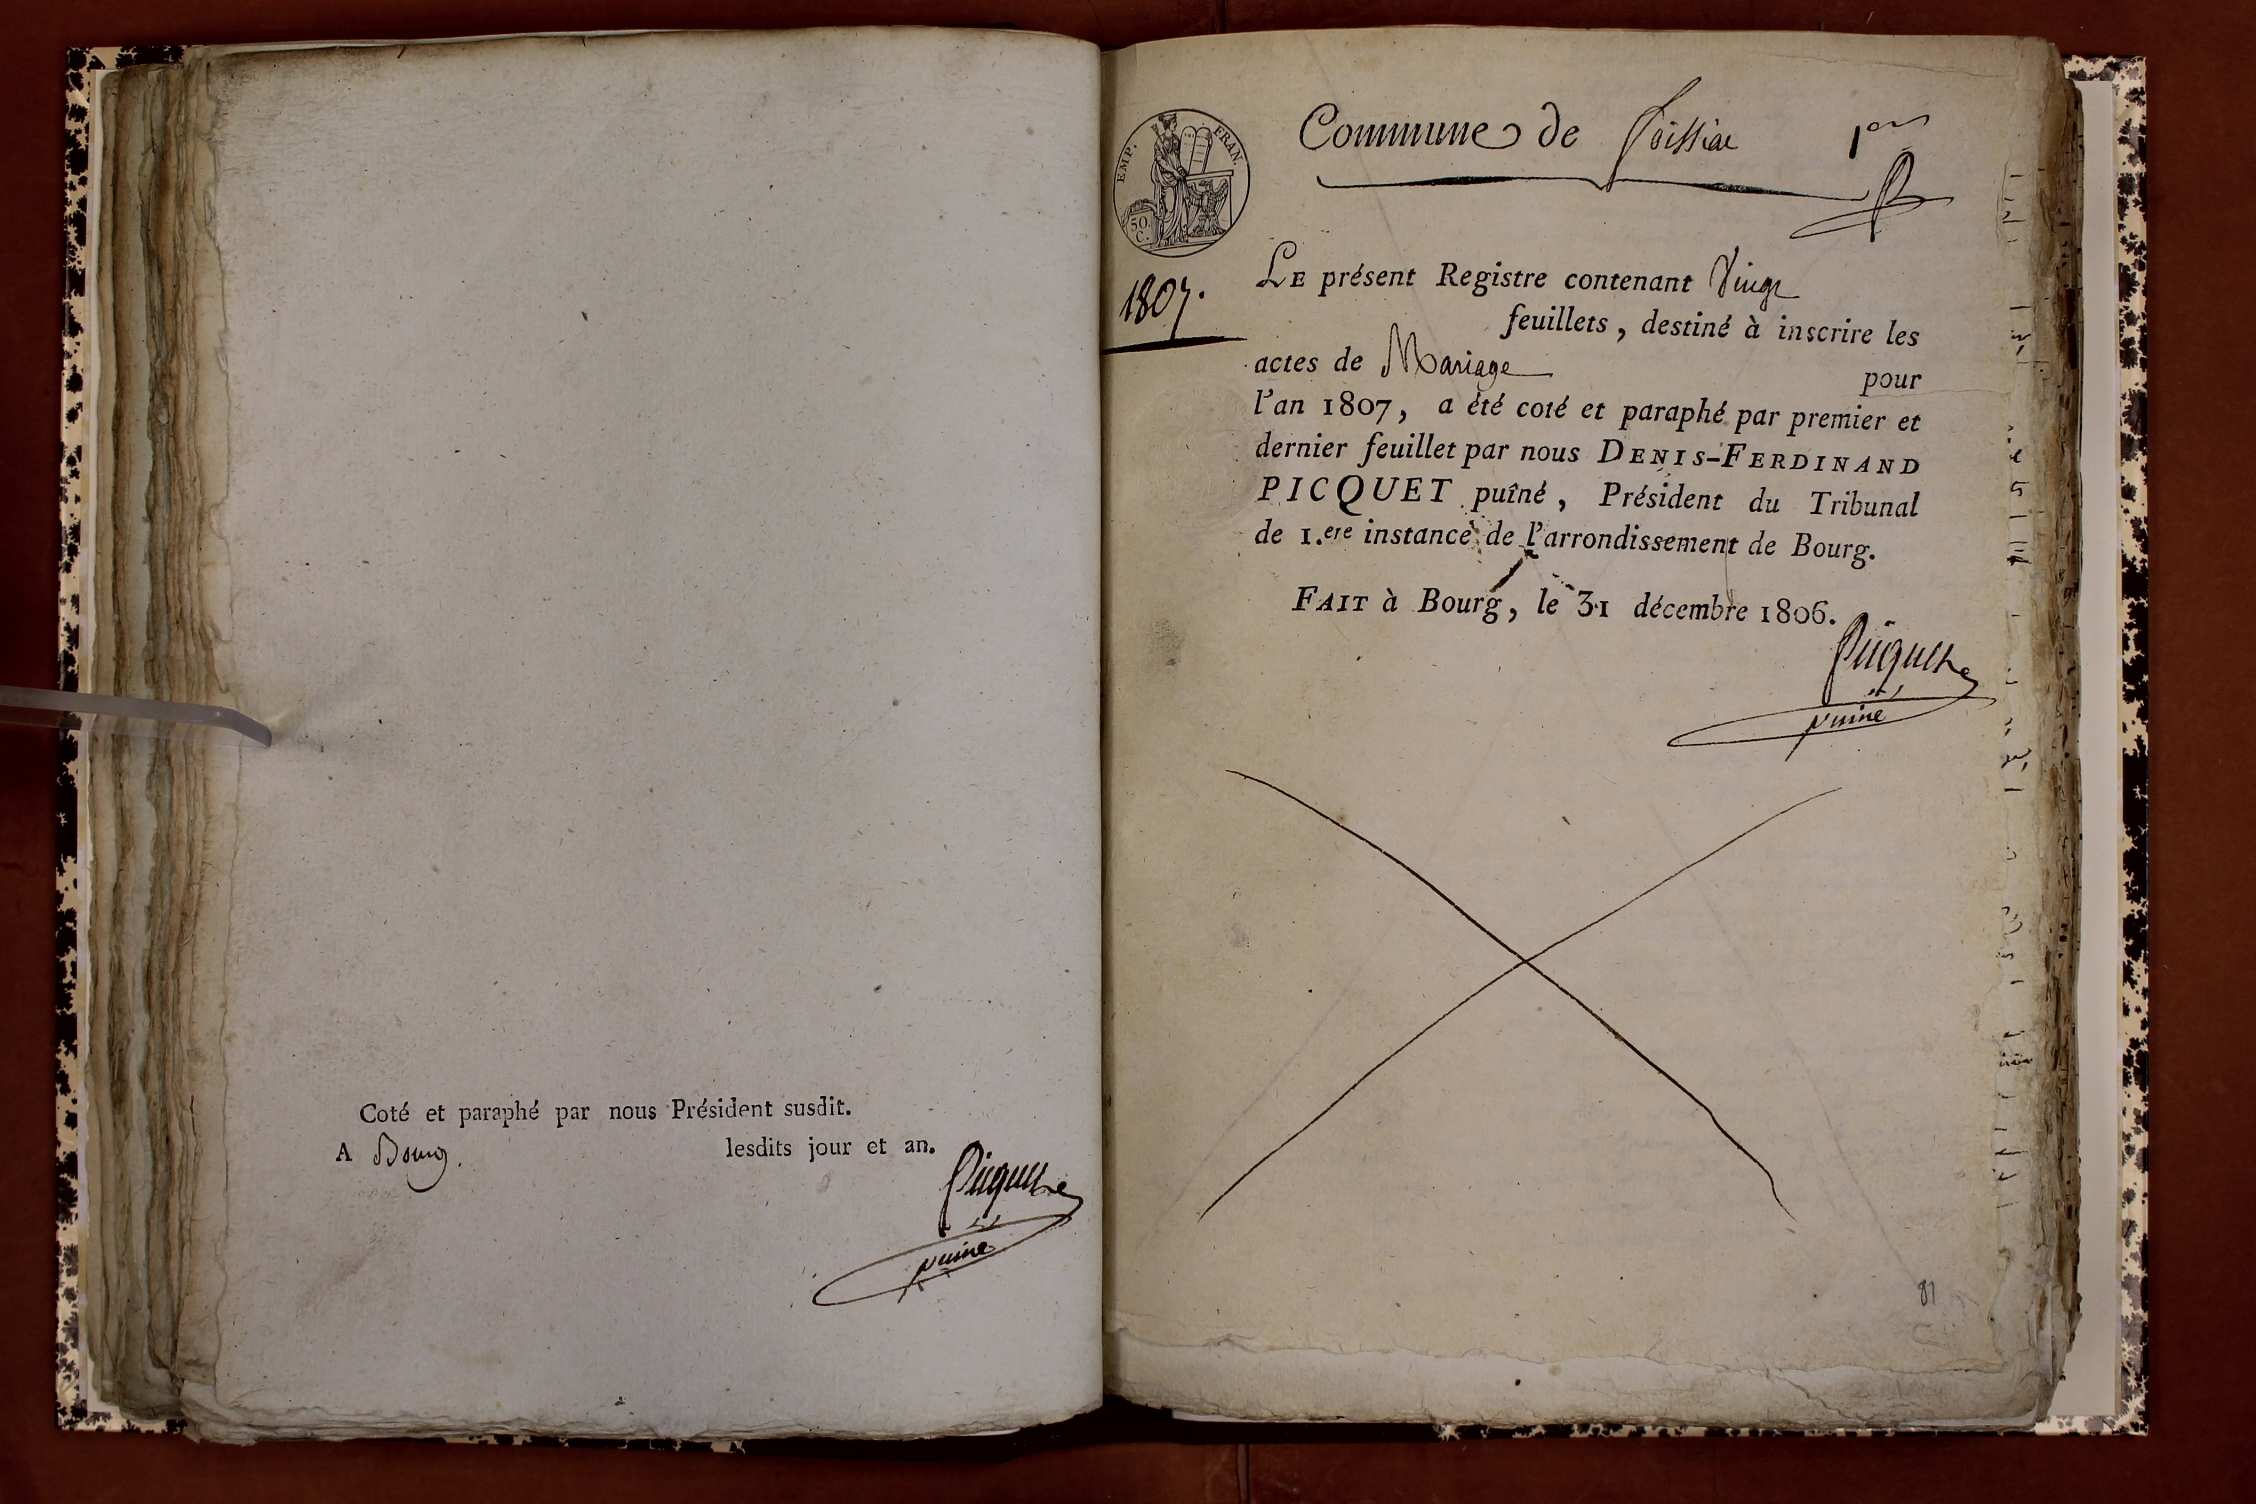 Coté et paraphé par nous Président susdit.
A Bourg. lesdits jour et an.
Picquet
puiné
EMP. FRAN.
50.
C.
Commune de Foissiat 1er
1807.
LE présent Registre contenant Vingt
feuillets, destiné à inscrire les
actes de Mariage pour
l'an 1807, a été coté et paraphé par premier et
dernier feuillet par nous DENIS-FERDINAND
PICQUET puîné, Président du Tribunal
de 1.ere instance de l'arrondissement de Bourg.
FAIT à Bourg, le 31 décembre 1806.
Picquet
puiné
81